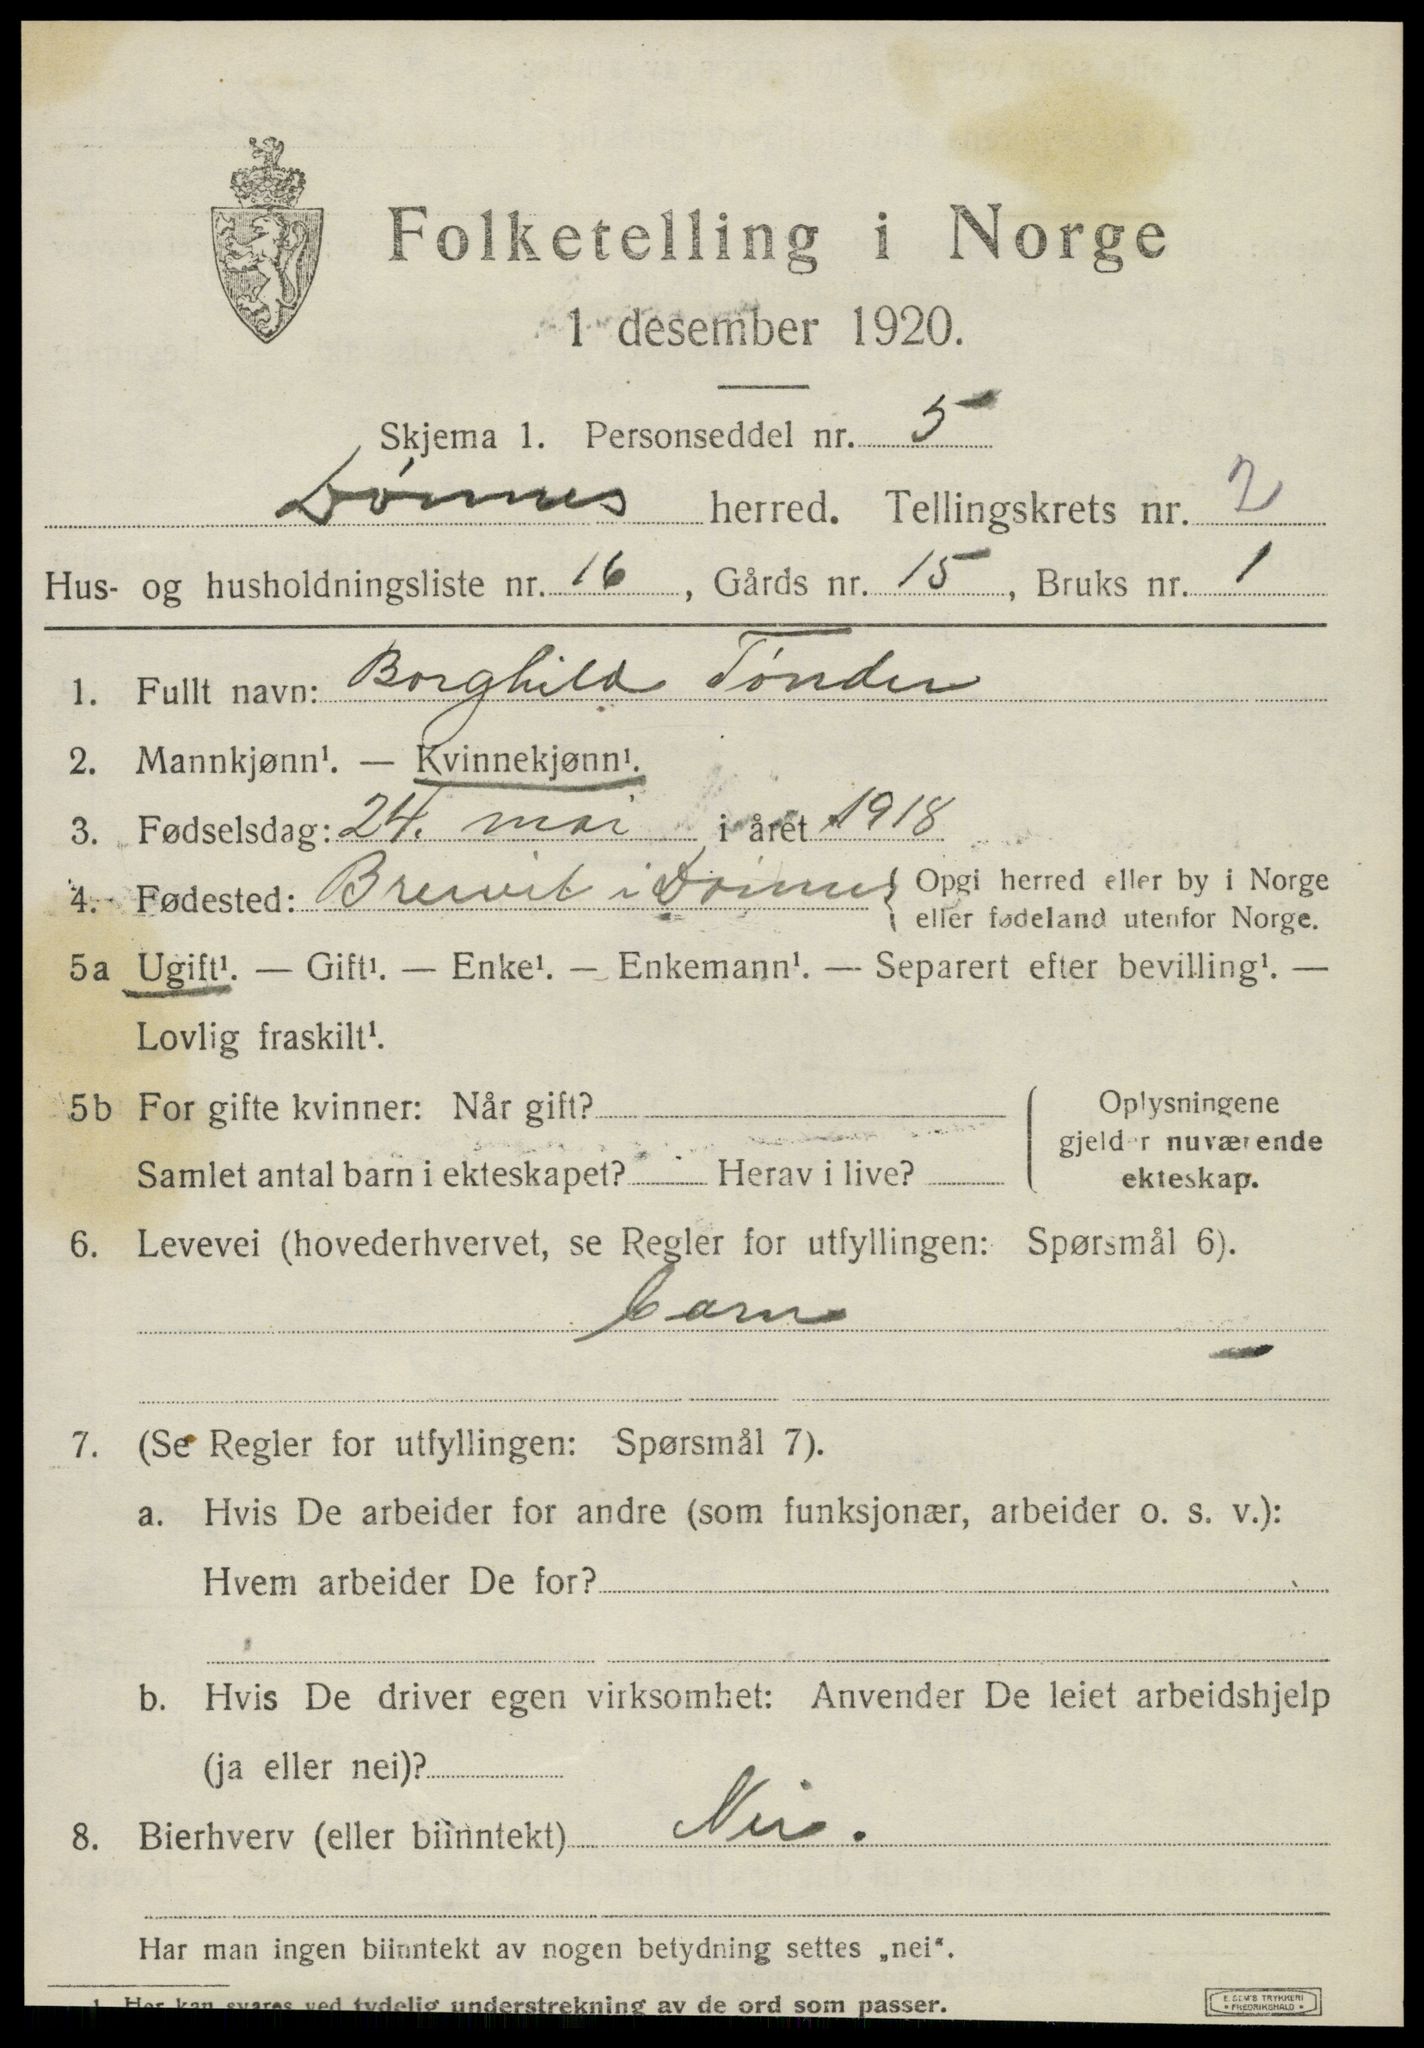 Folketelling i Norge
1 desember 1920.
Skjema 1. Personseddel nr. 5
Dønnes herred. Tellingskrets nr. 2
Hus- og husholdningsliste nr. 16, Gårds nr. 15, Bruks nr. 1
1. Fullt navn: Borghild Tønder
2. Mannkjønn¹. — Kvinnekjønn¹.
3. Fødselsdag: 24. mai i året 1918
4. Fødested: i Dønnes { Opgi herred eller by i Norge
eller fødeland utenfor Norge.
5a Ugift¹. — Gift¹. — Enke¹. — Enkemann¹. — Separert efter bevilling¹. —
Lovlig fraskilt¹.
5b For gifte kvinner: Når gift?
Samlet antal barn i ekteskapet? Herav i live?
Oplysningene
gjelder nuværende
ekteskap.
6. Levevei (hovederhvervet, se Regler for utfyllingen: Spørsmål 6).
barn
7. (Se Regler for utfyllingen: Spørsmål 7).
a. Hvis De arbeider for andre (som funksjonær, arbeider o. s. v.):
Hvem arbeider De for?
b. Hvis De driver egen virksomhet: Anvender De leiet arbeidshjelp
(ja eller nei)?
8. Bierhverv (eller biinntekt) Nei.
Har man ingen biinntekt av nogen betydning settes „nei“.
1 Her kan svares ved tydelig understrekning av de ord som passer.
E. SEM'S TRYKKERI
FREDRIKSHALD